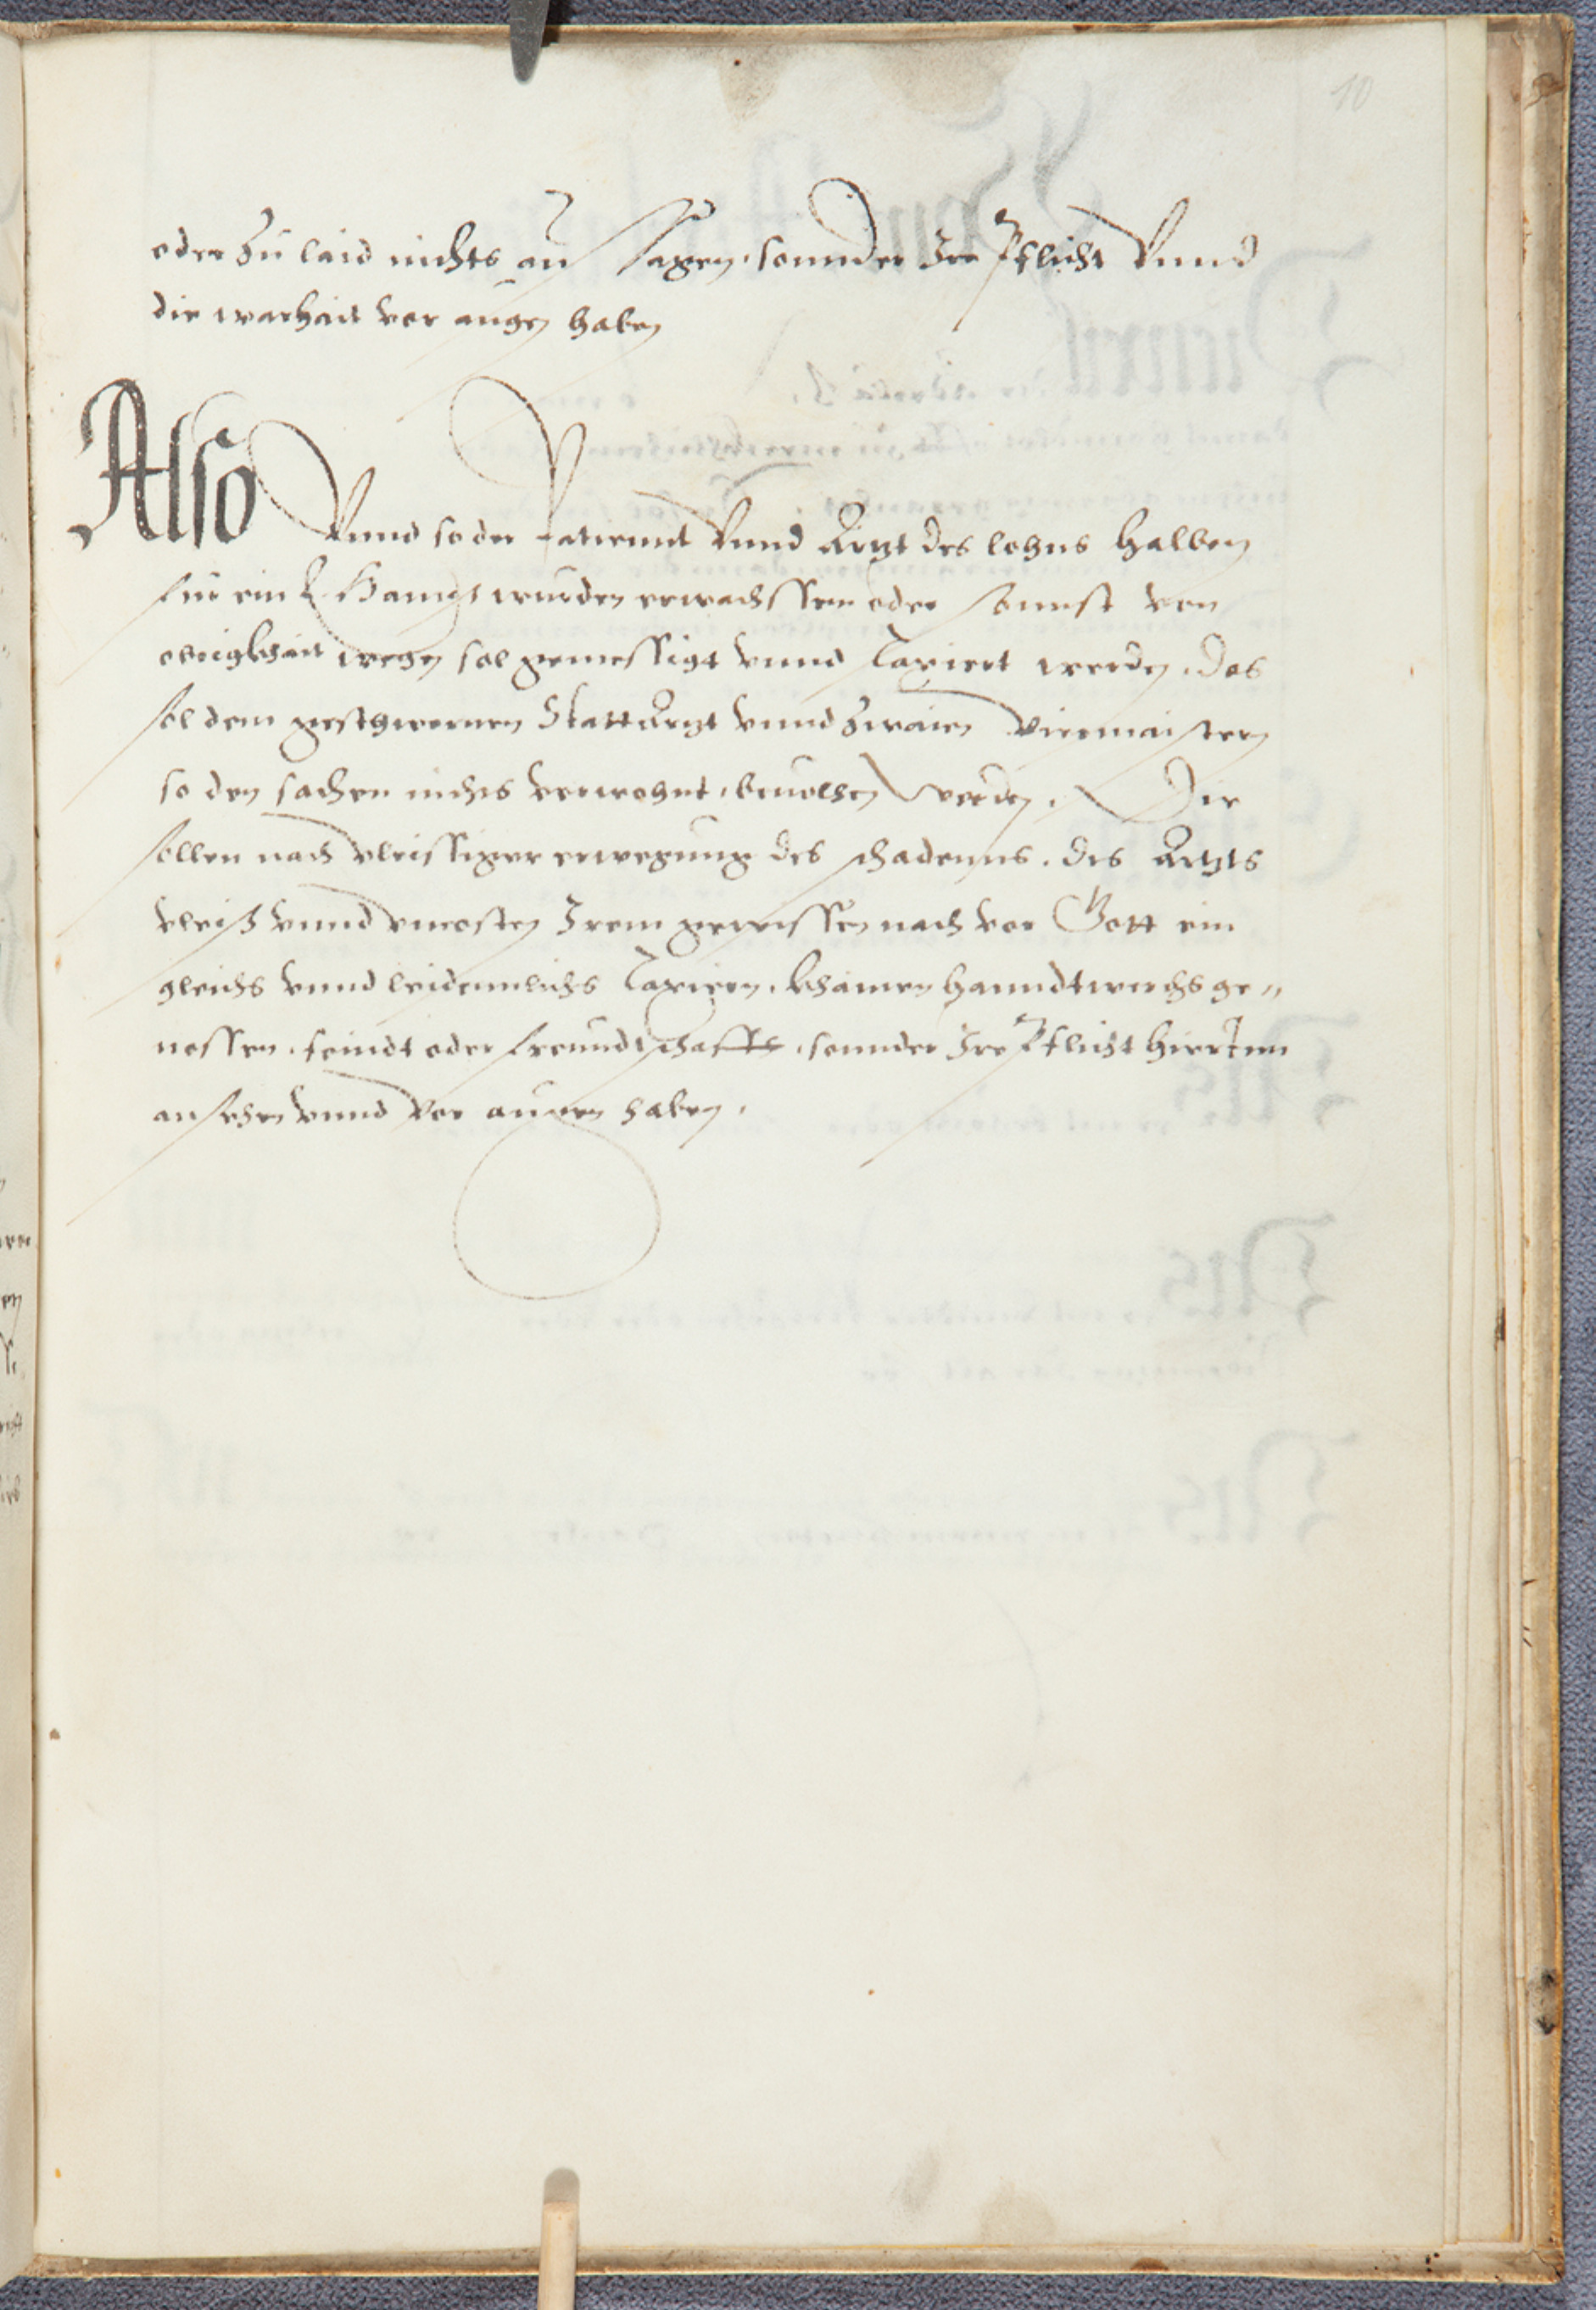 10
oder zu laid nichts an sagen, sonnder Ire Pflicht Vnnd
die warhait vor augen haben
Also Vnnd so der Patiennt Vnnd Artzt des lohns halben
für ein E. Haupt wurden erwachssen oder sonnst von
obrigkhait wegen sol gemessigt vnnd Taxiert werden, Das
sol dem geschwornen Stattartzt vnnd zwaien Viermaistern
so den sachen nichts verwohnt, beuolhen werden. Die
sollen nach vleissiger erwegung des schadenns, des Artzts
vleiß vnnd vncosten Irem gewissen nach vor Gott ein
gleichs vnnd leidennlichs Taxiren, khainen hanndtwerchs ge„
nossen, feindt oder freundtschafft, sonnder Ire Pflicht hierInn
ansehen vnnd vor augen haben.